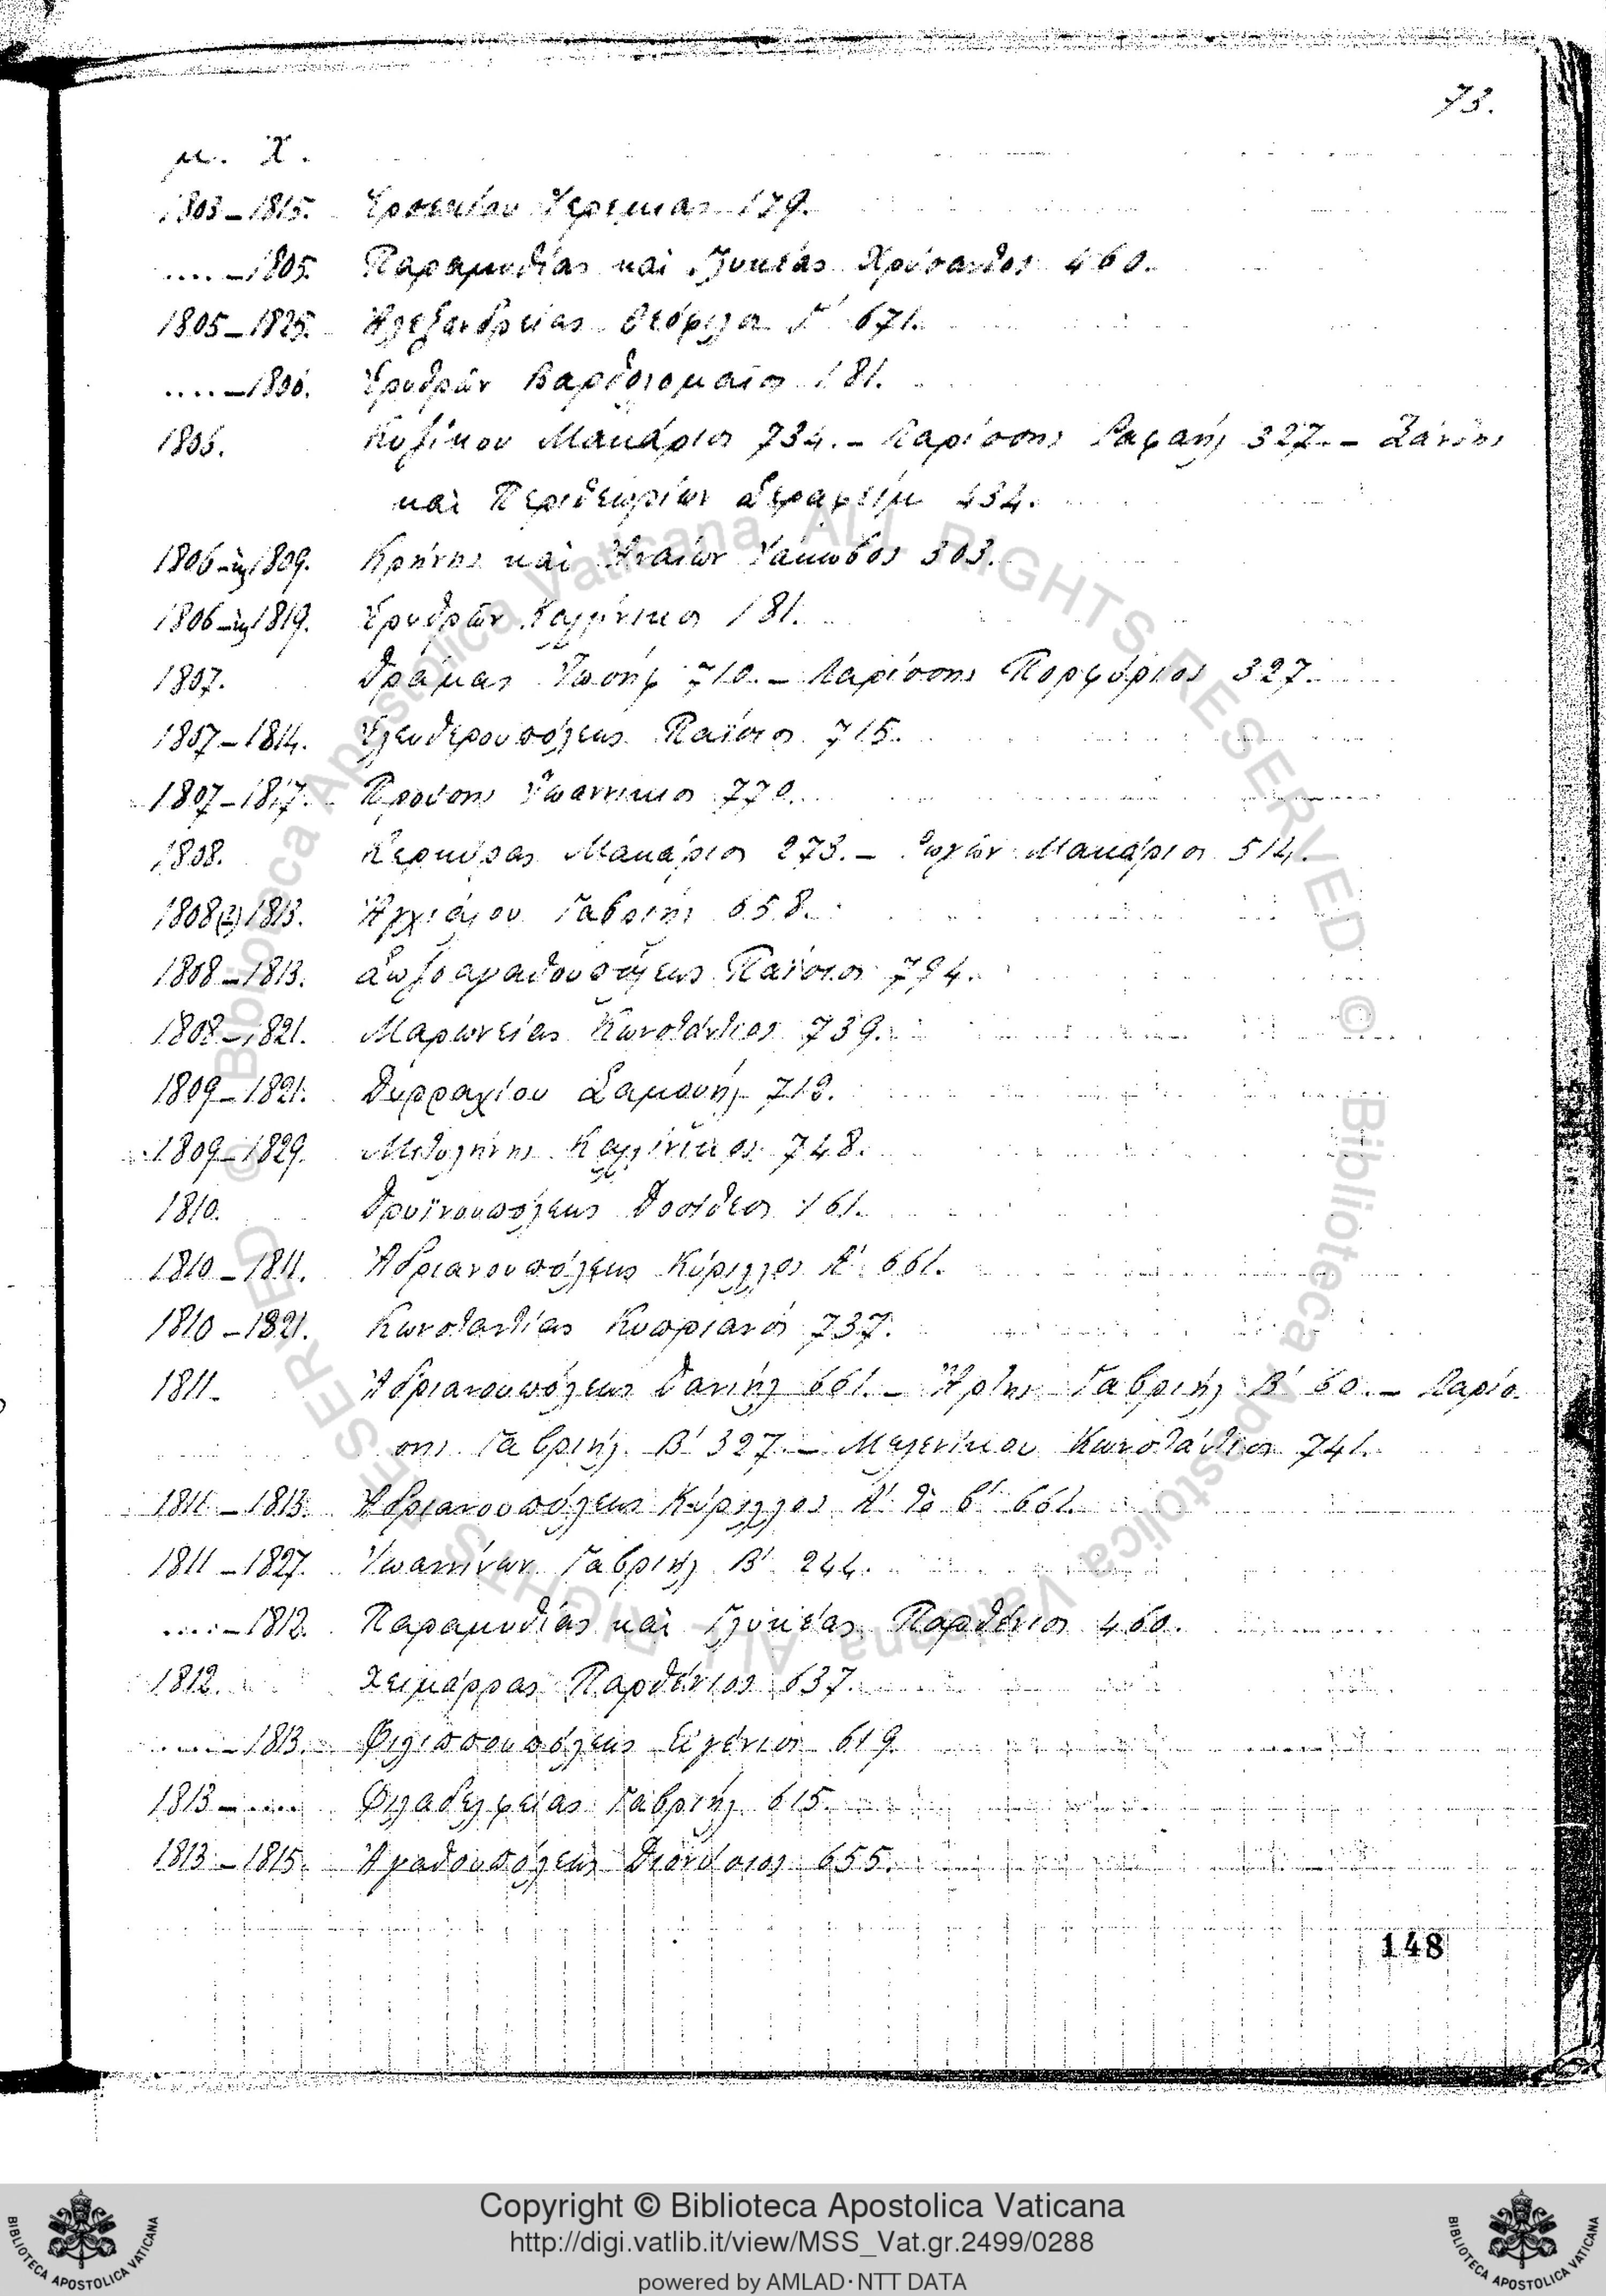 73.
μ. Χ.
1803–1815. Ἐρσεκίου Ἱερεμίας 179.
....–1805. Παραμυθίας καὶ Γλυκέας Χρύσανθος 460.
1805–1825. Ἀλεξανδρείας Θεόφιλος Γ΄ 671.
....–1806. Ἐρυθρῶν Βαρθολομαῖος 181.
1806. Κυζίκου Μακάριος 734. – Λαρίσσης Ραφαήλ 327. – Ξάνθης
καὶ Περιθεωρίων Σεραφείμ 434.
1806 1809. Κρήνης καὶ Ἀνέων Ἰάκωβος 303.
1806 1819. Ἐρυθρῶν Καλλίνικος 181.
1807. Δράμας Ἰωσήφ 710. – Λαρίσσης Πορφύριος 327.
1807–1814. Ἐλευθερουπόλεως Παΐσιος 715.
1807–1817. Προύσης Ἰωαννίκιος 770.
1808. Κερκύρας Μακάριος 273. – Ρωγῶν Μακάριος 514.
1808(2)1813. Ἀγχιάλου Γαβριήλ 658.
1808–1813. Σωζοαγαθουπόλεως Παΐσιος 794.
1808–1821. Μαρωνείας Κωνστάντιος 739.
1809–1821. Δυρραχίου Σαμουήλ 712.
1809–1829. Μιτυλήνης Καλλίνικος 748.
1810. Δρυϊνουπόλεως Δοσίθεος 161.
1810–1811. Ἀδριανουπόλεως Κύριλλος Α΄ 661.
1810–1821. Κωνσταντίας Κυπριανός 737.
1811. Ἀδριανουπόλεως Δανιήλ 661. – Ἄρτης Γαβριήλ Β΄ 60. – Λαρίσ-
σης Γαβριήλ Β΄ 327. – Μελενίκου Κωνστάντιος 741.
1811–1813. Ἀδριανουπόλεως Κύριλλος Α΄ τὸ β΄ 661.
1811–1827. Ἰωαννίνων Γαβριήλ Β΄ 244.
....–1812. Παραμυθίας καὶ Γλυκέας Παρθένιος 460.
1812. Χειμάρρας Παρθένιος 637.
....–1813. Φιλιππουπόλεως Εὐγένιος 619
1813–.... Φιλαδελφείας Γαβριήλ 615.
1813–1815. Ἀγαθουπόλεως Διονύσιος 655.
148
© Biblioteca Apostolica Vaticana ALL RIGHTS RESERVED
© Biblioteca Apostolica Vaticana ALL RIGHTS RESERVED
Copyright © Biblioteca Apostolica Vaticana
http://digi.vatlib.it/view/MSS_Vat.gr.2499/0288
powered by AMLAD·NTT DATA
BIBLIOTECA APOSTOLICA VATICANA
BIBLIOTECA APOSTOLICA VATICANA